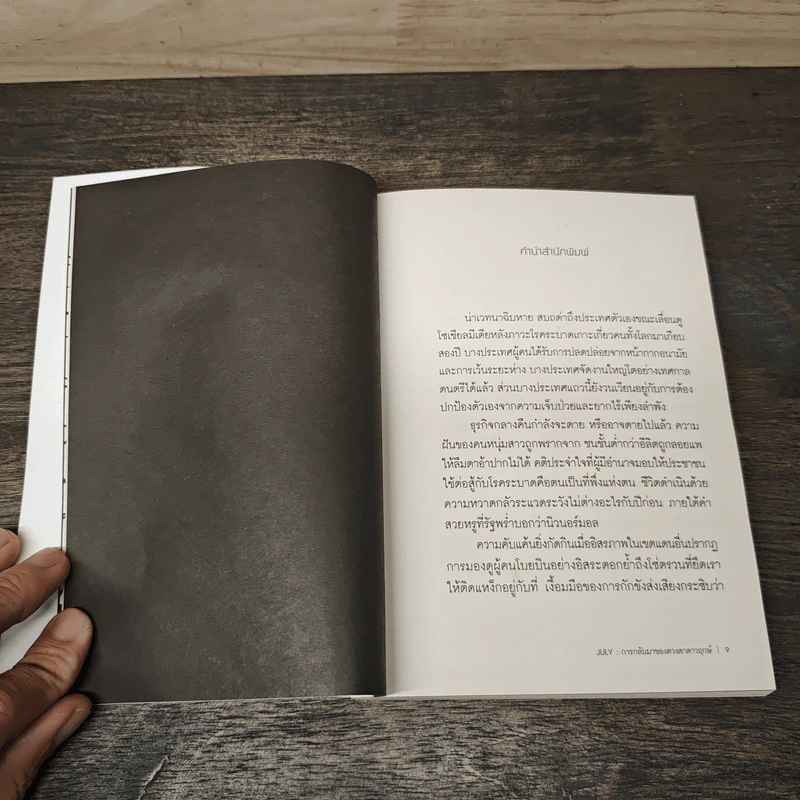 คำนำสำนักพิมพ์
น่าเวทนาฉิบหาย สบถด่าถึงประเทศตัวเองขณะเลื่อนดู
โซเชียลมีเดียหลังภาวะโรคระบาดเกาะเกี่ยวคนทั้งโลกมาเกือบ
สองปี บางประเทศผู้คนได้รับการปลดปล่อยจากหน้ากากอนามัย
และการเว้นระยะห่าง บางประเทศจัดงานใหญ่โตอย่างเทศกาล
ดนตรีได้แล้ว ส่วนบางประเทศแถวนี้ยังวนเวียนอยู่กับการต้อง
ปกป้องตัวเองจากความเจ็บป่วยและยากไร้เพียงลำพัง
ธุรกิจกลางคืนกำลังจะตาย หรืออาจตายไปแล้ว ความ
ฝันของคนหนุ่มสาวถูกพรากจาก ชนชั้นต่ำกว่าอีลิตถูกลอยแพ
ให้ลืมตาอ้าปากไม่ได้ คติประจำใจที่ผู้มีอำนาจมอบให้ประชาชน
ใช้ต่อสู้กับโรคระบาดคือตนเป็นที่พึ่งแห่งตน ชีวิตดำเนินด้วย
ความหวาดกลัวระแวดระวังไม่ต่างอะไรกับปีก่อน ภายใต้คำ
สวยหรูที่รัฐพร่ำบอกว่านิวนอร์มอล
ความคับแค้นยิ่งกัดกินเมื่ออิสรภาพในเขตแดนอื่นปรากฏ
การมองดูผู้คนโบยบินอย่างอิสระตอกย้ำถึงโซ่ตรวนที่ยึดเรา
ให้ติดแหง็กอยู่กับที่ เงื้อมมือของการกักขังส่งเสียงกระซิบว่า
JULY : การกลับมาของดวงตาดาวฤกษ์ | 9